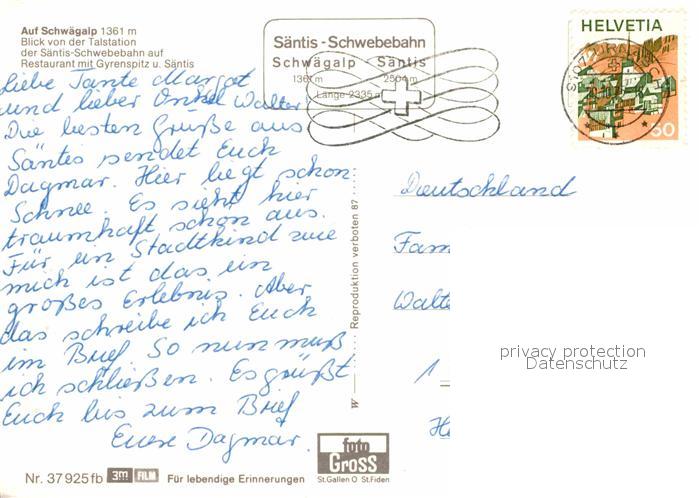 Auf Schwägalp 1361 m
Blick von der Talstation
der Säntis-Schwebebahn auf
Restaurant mit Gyrenspitz u. Säntis
Liebe Tante Margot
und lieber Onkel Walter!
Die besten Grüße aus
Säntis sendet Euch
Dagmar. Hier liegt schon
Schnee. Es sieht hier
traumhaft schon aus.
Für ein Stadtkind wie
mich ist das ein
großes Erlebnis. Aber
das schreibe ich Euch
im Brief. So nun muß
ich schließen. Es grüßt
Euch bis zum Brief
Eure Dagmar.
Nr. 37 925 fb 3m FILM Für lebendige Erinnerungen
foto
GROSS
St.Gallen O St.Fiden
W Reproduktion verboten 87
Säntis-Schwebebahn
Schwägalp - Säntis
1361 m 2504 m
Länge 2335 m
HELVETIA
50
Deutschland
Fam
Walte
1
He
privacy protection
Datenschutz